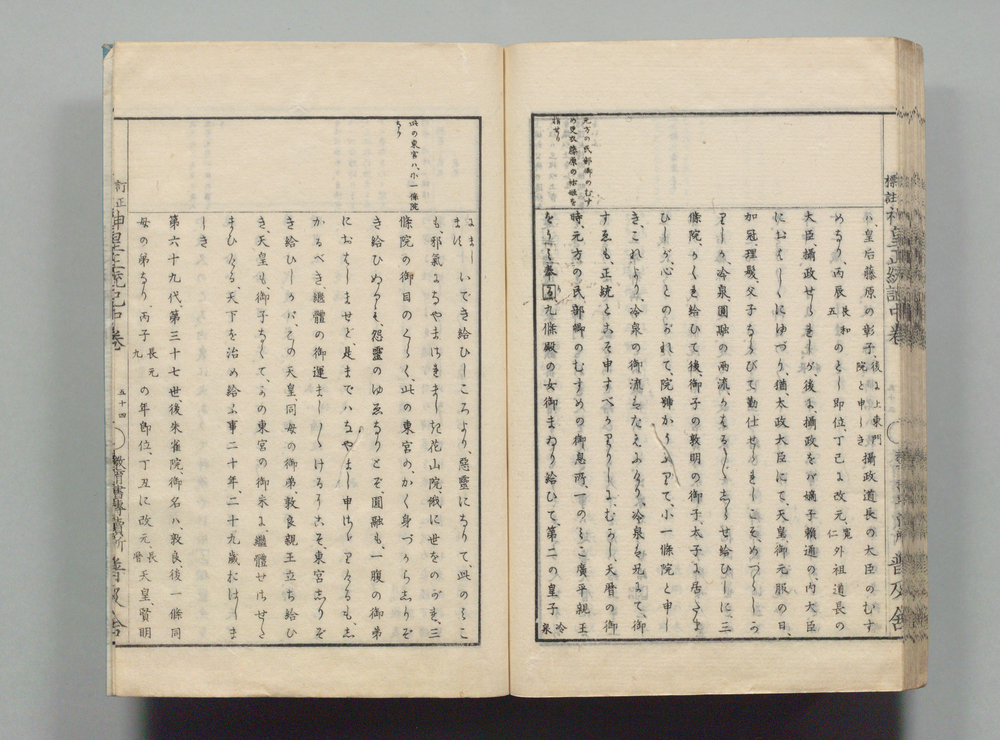 標註
元方の民部卿のむす
め更衣藤原の祐姫を
指せり
ハ、皇后藤原の彰子、後に上東門院と申しき攝政道長の大臣のむす
めなり、丙辰長和五のとし即位丁巳に改元、寛仁外祖道長の
大臣、攝政せられしが、後に、攝政をバ嫡子頼通の、内大臣
におはしゝにゆづり、猶、太政大臣にて、天皇、御元服の日、
加冠、理髪、父子ならびて勤仕せられしこそ、めづらしう
侍りしか、冷泉、圓融の両流、かはる〲、しらせ給ひしに、三
條院、かくれ給ひて後、御子の敦明の御子、太子に居たま
ひしが、心とのがれて、院號かうぶりて、小一條院と申し
き、これより、冷泉の御流はたえにけり、冷泉は兄にて御
すゑも、正統とこそ申すべかりしに、むかし、天暦の御
時、元方の民部卿のむすめの御息所、一のみこ廣平親王、
をうみ奉る、九條殿の女御まゐり給ひて、第二の皇子冷泉
にまし
此の東宮ハ、小一條院
なり
まはいでき給ひしころより、惡靈になりて、此のみこ
も、邪氣になやまされましき、花山院、俄に世をのがれ、三
條院の御目のくらく、此の東宮の、かく身づからしりぞ
き給ひぬるも、怨靈のゆゑなりとぞ、圓融も、一腹の御弟
におはしませど、是までハなやまし申さゞりけるも、し
かるべき、繼體の御運ましましけるなりとぞ、東宮しりぞ
き給ひしかバ、この天皇、同母の御弟、敦良親王立ち給ひ
き、天皇も、御子なくて、かの東宮の御末に、繼體せさせた
まひぬる、天下を治め給ふ事二十年、二十九歳おはしま
しき
第六十九代、第三十七世、後朱雀院、御名ハ、敦良、後一條同
母の弟なり、丙子長元九の年即位、丁丑に改元、長暦天皇、賢明
訂正神皇正統記中卷
五十四